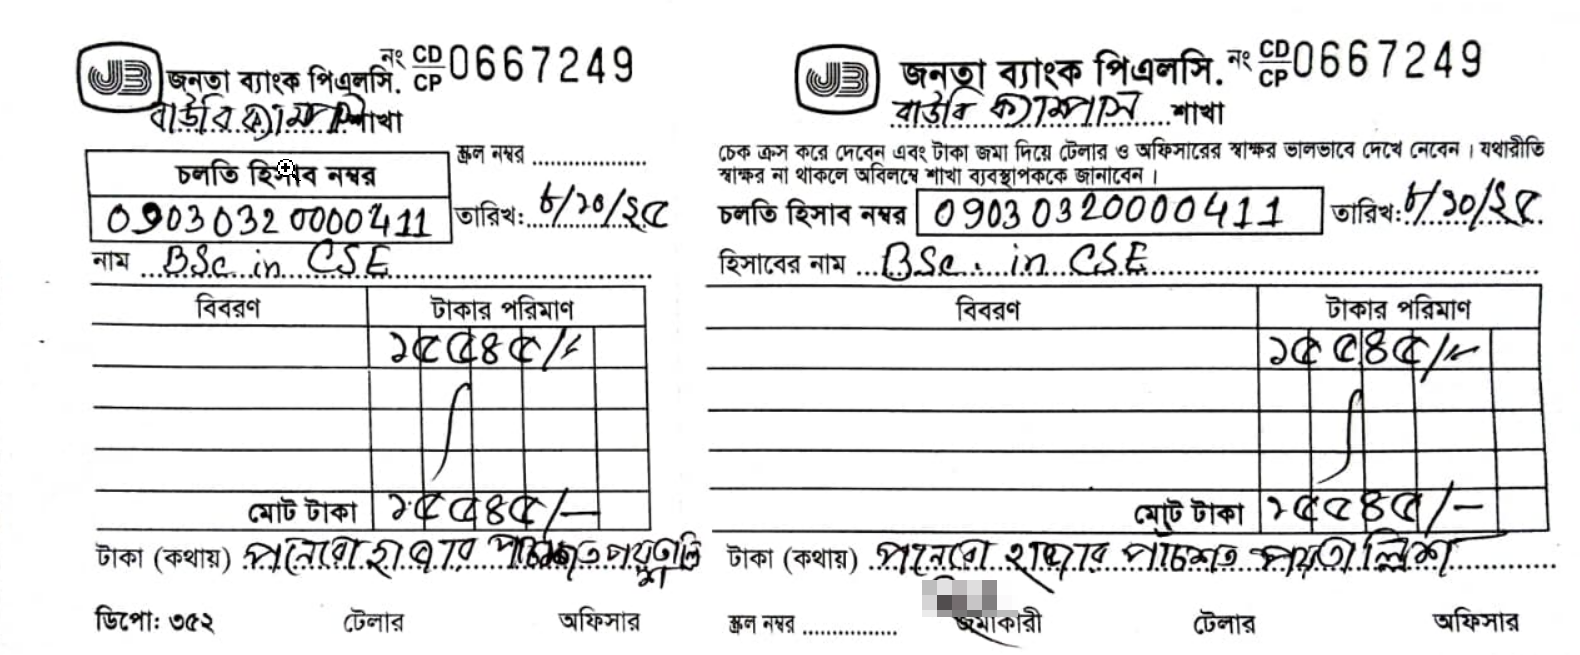 JB জনতা ব্যাংক পিএলসি. নং CD/CP 0667249
বাউবি ক্যাম্পাস শাখা
স্ক্রল নম্বর ....................
চলতি হিসাব নম্বর
0903 0320000411 তারিখ: ৮/১০/২৫
নাম BSc in CSE
বিবরণ টাকার পরিমাণ
১৫৫৪৫/=
মোট টাকা ১৫৫৪৫/-
টাকা (কথায়) পনেরো হাজার পাঁচশত পয়তাল্লিশ
ডিপো: ৩৫২ টেলার অফিসার
JB জনতা ব্যাংক পিএলসি. নং CD/CP 0667249
বাউবি ক্যাম্পাস শাখা
চেক ক্রস করে দেবেন এবং টাকা জমা দিয়ে টেলার ও অফিসারের স্বাক্ষর ভালভাবে দেখে নেবেন। যথারীতি
স্বাক্ষর না থাকলে অবিলম্বে শাখা ব্যবস্থাপককে জানাবেন।
চলতি হিসাব নম্বর 0903 0320000411 তারিখ: ৮/১০/২৫
হিসাবের নাম BSc. in CSE
বিবরণ টাকার পরিমাণ
১৫৫৪৫/=
মোট টাকা ১৫৫৪৫/-
টাকা (কথায়) পনেরো হাজার পাঁচশত পয়তাল্লিশ
স্ক্রল নম্বর ................ জমাকারী টেলার অফিসার